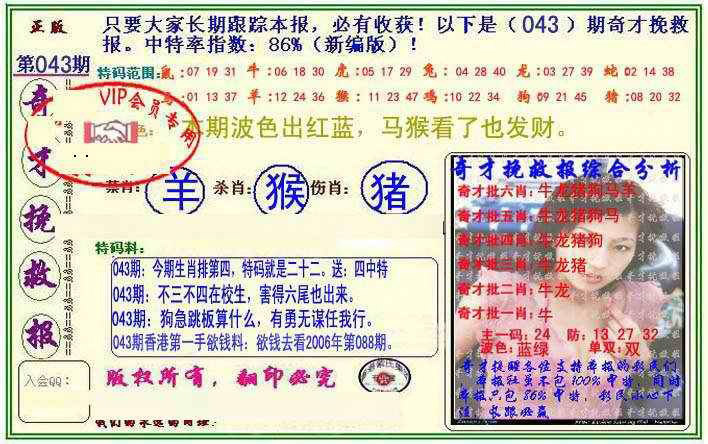 正版
只要大家长期跟踪本报，必有收获！以下是（043）期奇才挽救
报。中特率指数：86%（新编版）！
第043期
特码范围：鼠：07 19 31 牛：06 18 30 虎：05 17 29 兔：04 28 40 龙：03 27 39 蛇：02 14 38
01 13 37 羊：12 24 36 猴：11 23 47 鸡：10 22 34 狗：09 21 45 猪：08 20 32
VIP会员专用
本期波色出红蓝，马猴看了也发财。
奇才挽救报
禁肖：羊 杀肖：猴 伤肖：猪
特码料：
043期：今期生肖排第四，特码就是二十二。送：四中特
043期：不三不四在校生，害得六尾也出来。
043期：狗急跳板算什么，有勇无谋任我行。
043期香港第一手欲钱料：欲钱去看2006年第088期。
入会QQ：
版权所有，翻印必究
奇才挽救报综合分析
奇才批六肖：牛龙猪狗马羊
奇才批五肖：牛龙猪狗马
奇才批四肖：牛龙猪狗
奇才批三肖：牛龙猪
奇才批二肖：牛龙
奇才批一肖：牛
主一码：24 防：13 27 32
波色：蓝绿 单双：双
奇才提醒各位支持本报的彩民们
，本报社虽不包100%中特，同时
本报只包86%中特，彩民小心下
注，长跟必赢